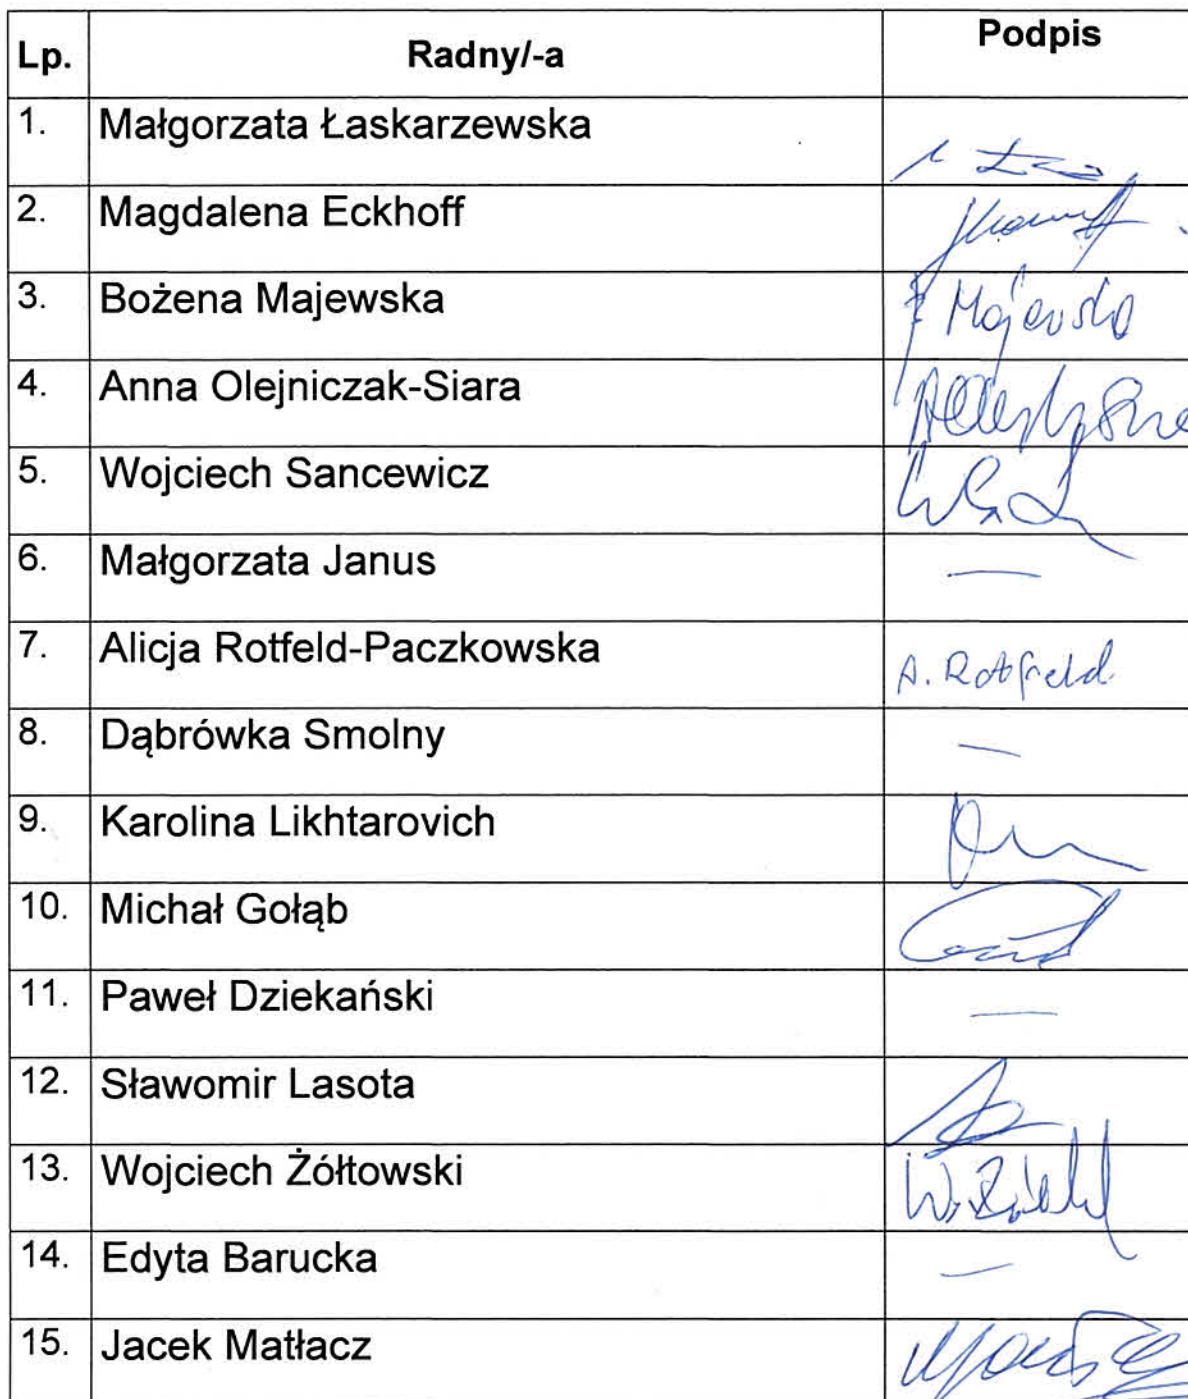 Lp. Radny/-a Podpis
1. Małgorzata Łaskarzewska
2. Magdalena Eckhoff
3. Bożena Majewska Majewska
4. Anna Olejniczak-Siara
5. Wojciech Sancewicz
6. Małgorzata Janus —
7. Alicja Rotfeld-Paczkowska A. Rotfeld
8. Dąbrówka Smolny —
9. Karolina Likhtarovich
10. Michał Gołąb
11. Paweł Dziekański —
12. Sławomir Lasota
13. Wojciech Żółtowski
14. Edyta Barucka —
15. Jacek Matłacz